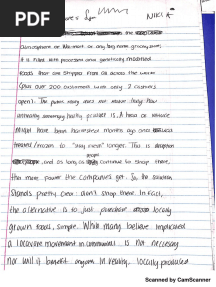 PDF
Dimensions or Walmart or any big name grocery store,
It is filled with processed and genetically modified
foods that are shipped from all across the world
(plus over 200 customers with only 2 cashiers
open). The public really does not realize truly how
unhealthy seemingly healthy produce is. A head of lettuce
might have been harvested months ago and
treated/frozen to "stay fresh" longer. This is
and as long as people continue to shop there,
the more power the companies get. So, the solution
stands pretty clear: don't shop there. In fact,
the alternative is to just purchase locally
grown foods, simple. While many believe implicated
a locavore movement in communities is not necessary
nor will it benefit anyone. In reality, locally produced
Scanned by CamScanner